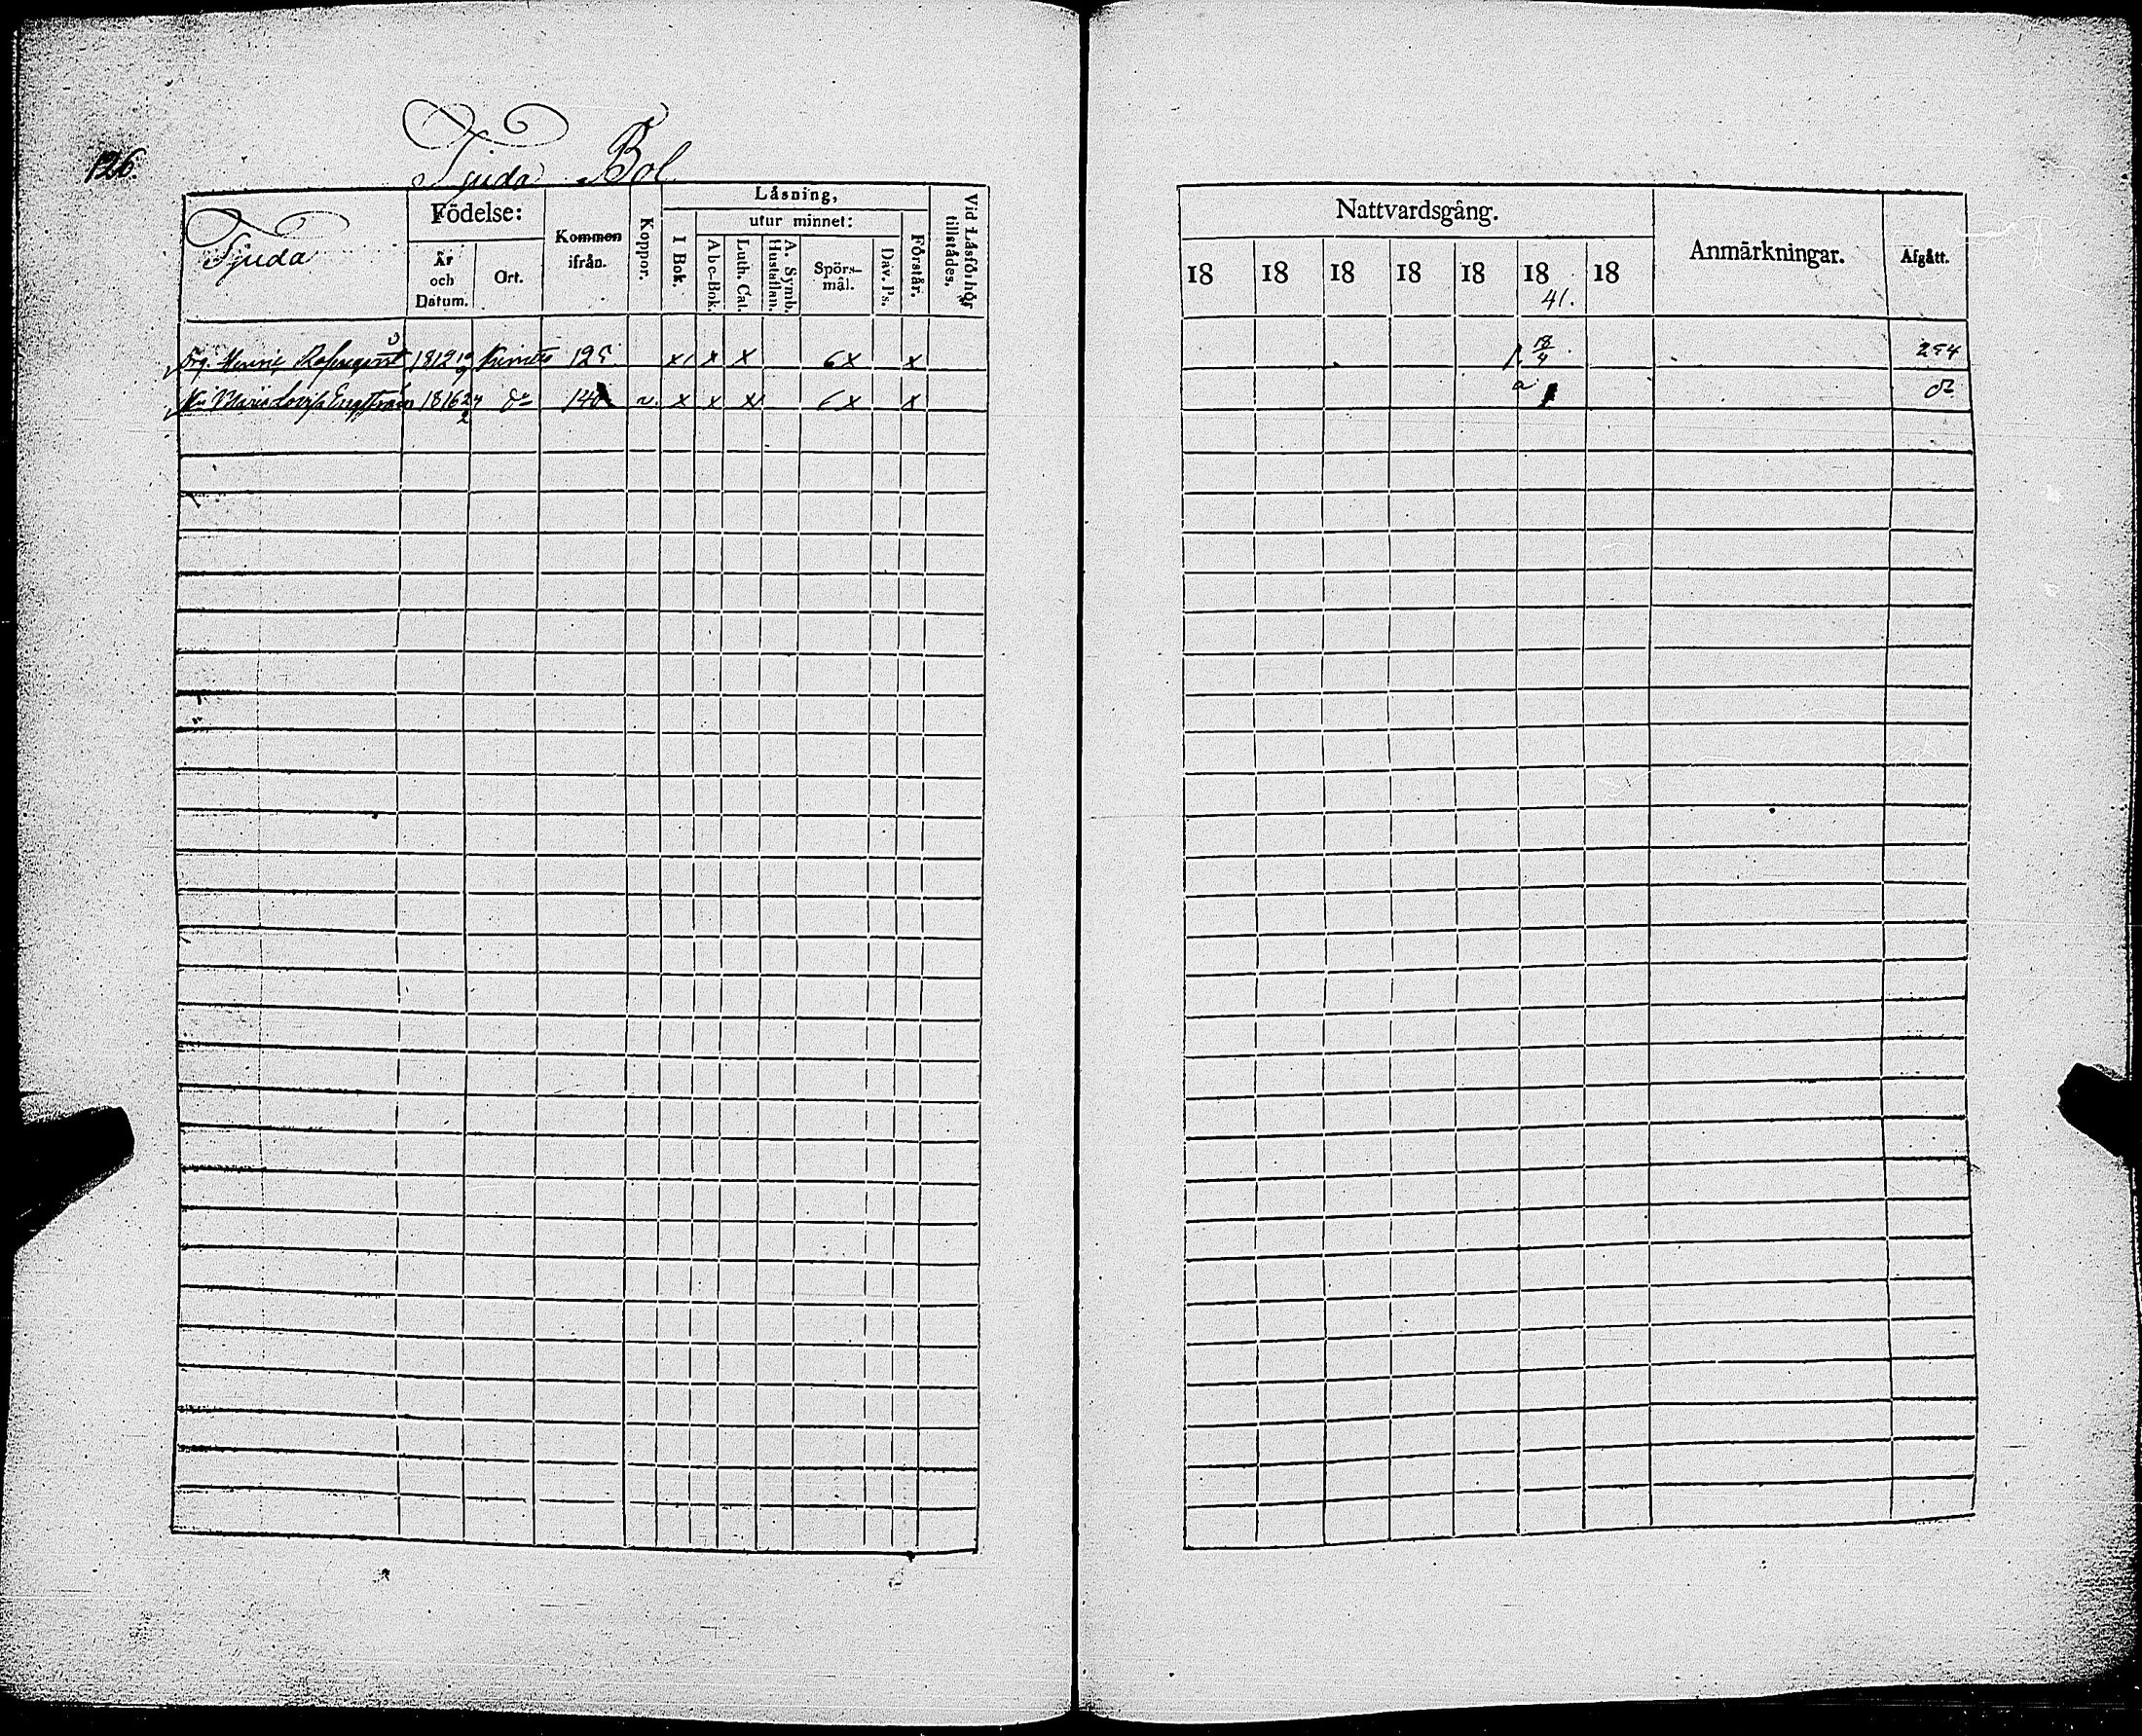 126.
Tjuda Bol
Tjuda
Födelse:
År och Datum.
Ort.
Kommen ifrån.
Koppor.
Läsning,
utur minnet:
I Bok.
Abc-Bok.
Luth. Cat.
A. Symb. Hustaflan.
Spörsmål.
Dav. Ps.
Förstår.
Vid Läsförhör tillstädes.
Nattvardsgång.
18 18 18 18 18 18 41. 18
Anmärkningar.
Afgått.
Drg. Henric 1812 19/9 Kimito 125 x x x 6x x 18/4 254
Maria Lovisa Engström 1816 24/2 do 140 v. x x x 6x x a do